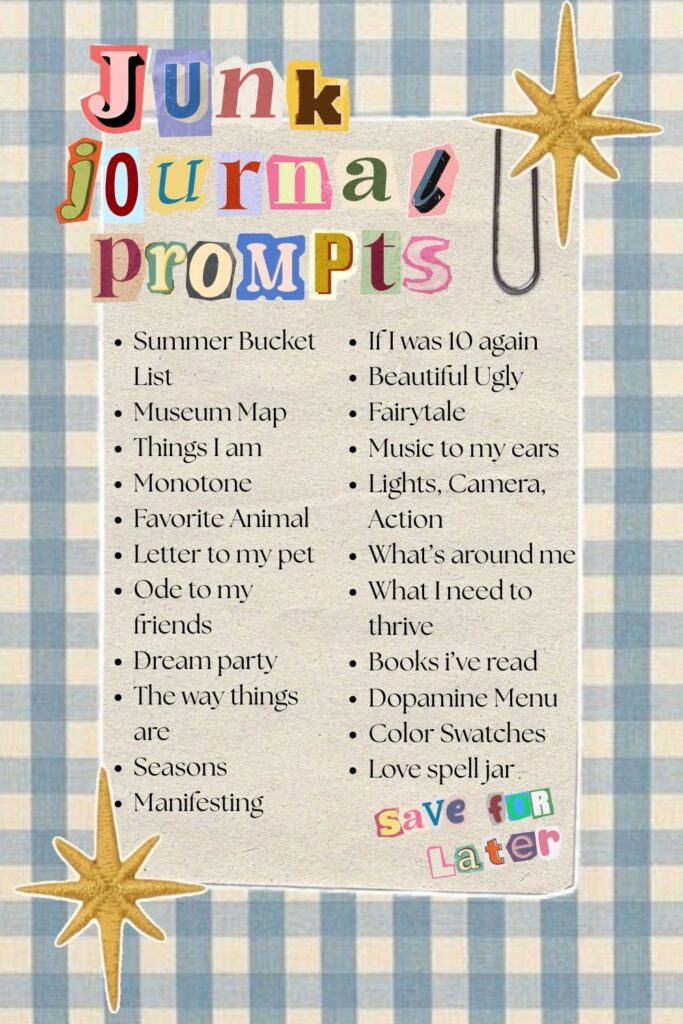 Junk
journal
prompts
• Summer Bucket
List
• Museum Map
• Things I am
• Monotone
• Favorite Animal
• Letter to my pet
• Ode to my
friends
• Dream party
• The way things
are
• Seasons
• Manifesting
• If I was 10 again
• Beautiful Ugly
• Fairytale
• Music to my ears
• Lights, Camera,
Action
• What's around me
• What I need to
thrive
• Books i've read
• Dopamine Menu
• Color Swatches
• Love spell jar
save foR
Later